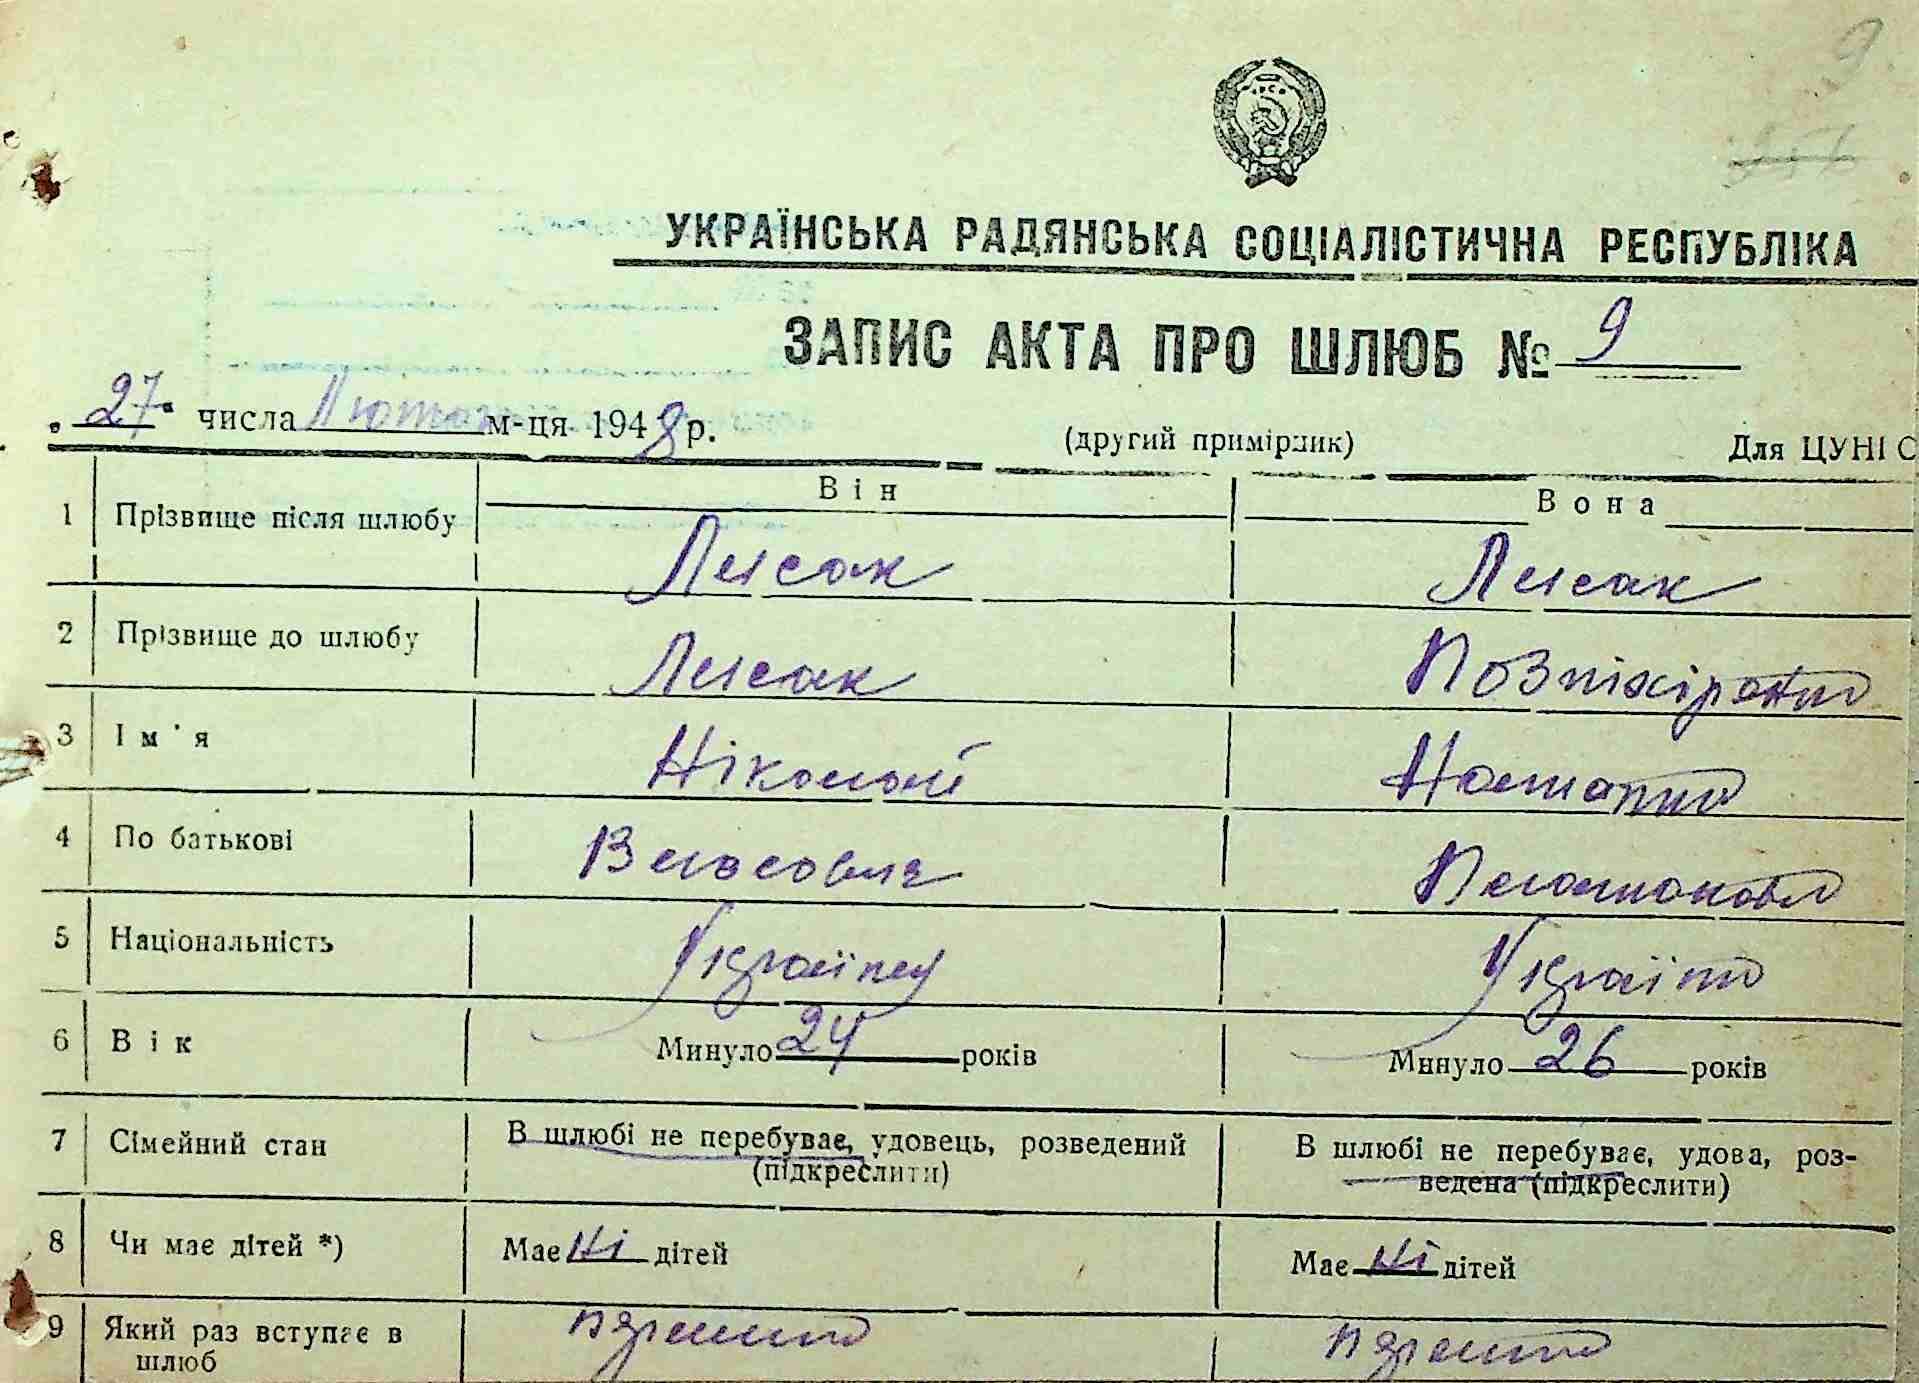 9
УКРАЇНСЬКА РАДЯНСЬКА СОЦІАЛІСТИЧНА РЕСПУБЛІКА
ЗАПИС АКТА ПРО ШЛЮБ № 9
„27“ числа Лютого м-ця 1948 р.
(другий примірник) Для ЦУНІ С
Він Вона
1 Прізвище після шлюбу Лисак Лисак
2 Прізвище до шлюбу Лисак
3 Ім'я Ніколай Наталка
4 По батькові Власович
5 Національність Українец Україн
6 Вік Минуло 24 років Минуло 26 років
7 Сімейний стан В шлюбі не перебуває, удовець, розведений В шлюбі не перебуває, удова, роз-
(підкреслити) ведена (підкреслити)
8 Чи має дітей *) Має ні дітей Має ні дітей
9 Який раз вступає в
шлюб